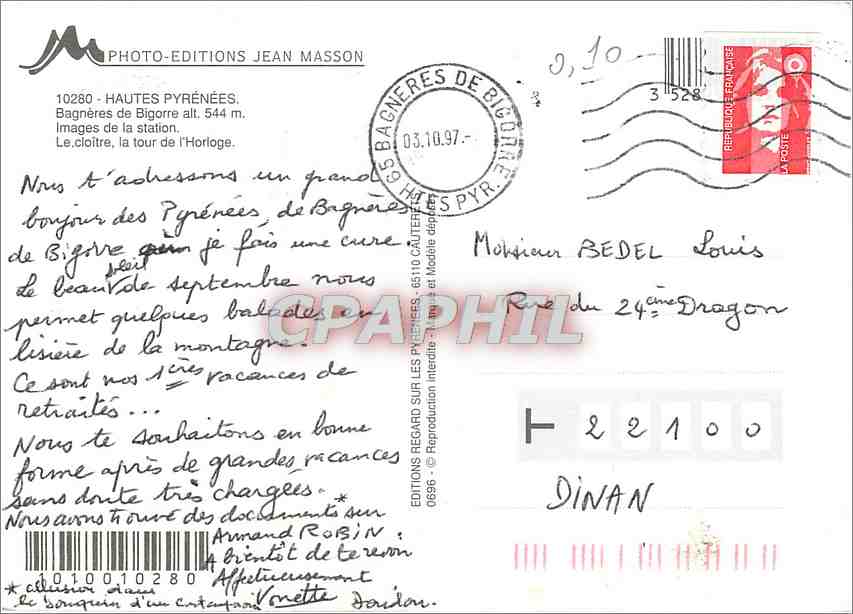 PHOTO-EDITIONS JEAN MASSON
10280 - HAUTES PYRÉNÉES.
Bagnères de Bigorre alt. 544 m.
Images de la station.
Le.cloître, la tour de l'Horloge.
Nous t'adressons un grand
bonjour des Pyrénées, de Bagnères
de Bigorre je fais une cure.
Le beau soleil de septembre nous
permet quelques balades en
lisière de la montagne.
Ce sont nos 1ères vacances de
retraités...
Nous te souhaitons en bonne
forme après de grandes vacances
sans doute très chargées.
Nous avons trouvé des documents sur *
Armand ROBIN.
A bientôt de te revoir
Affectueusement
Vonette Doudou.
* allusion dans
le bouquin d'un
1010010280
EDITIONS REGARD SUR LES PYRENEES - 65110 CAUTERETS
0696 - © Reproduction interdite - Marque et Modèle déposés
65 BAGNERES DE BIGORRE
03.10.97.-
HTES PYR.
0,10
3 528
REPUBLIQUE FRANÇAISE
LA POSTE
Monsieur BEDEL Louis
Rue du 24ème Dragon
22100
DINAN
CPAPHIL